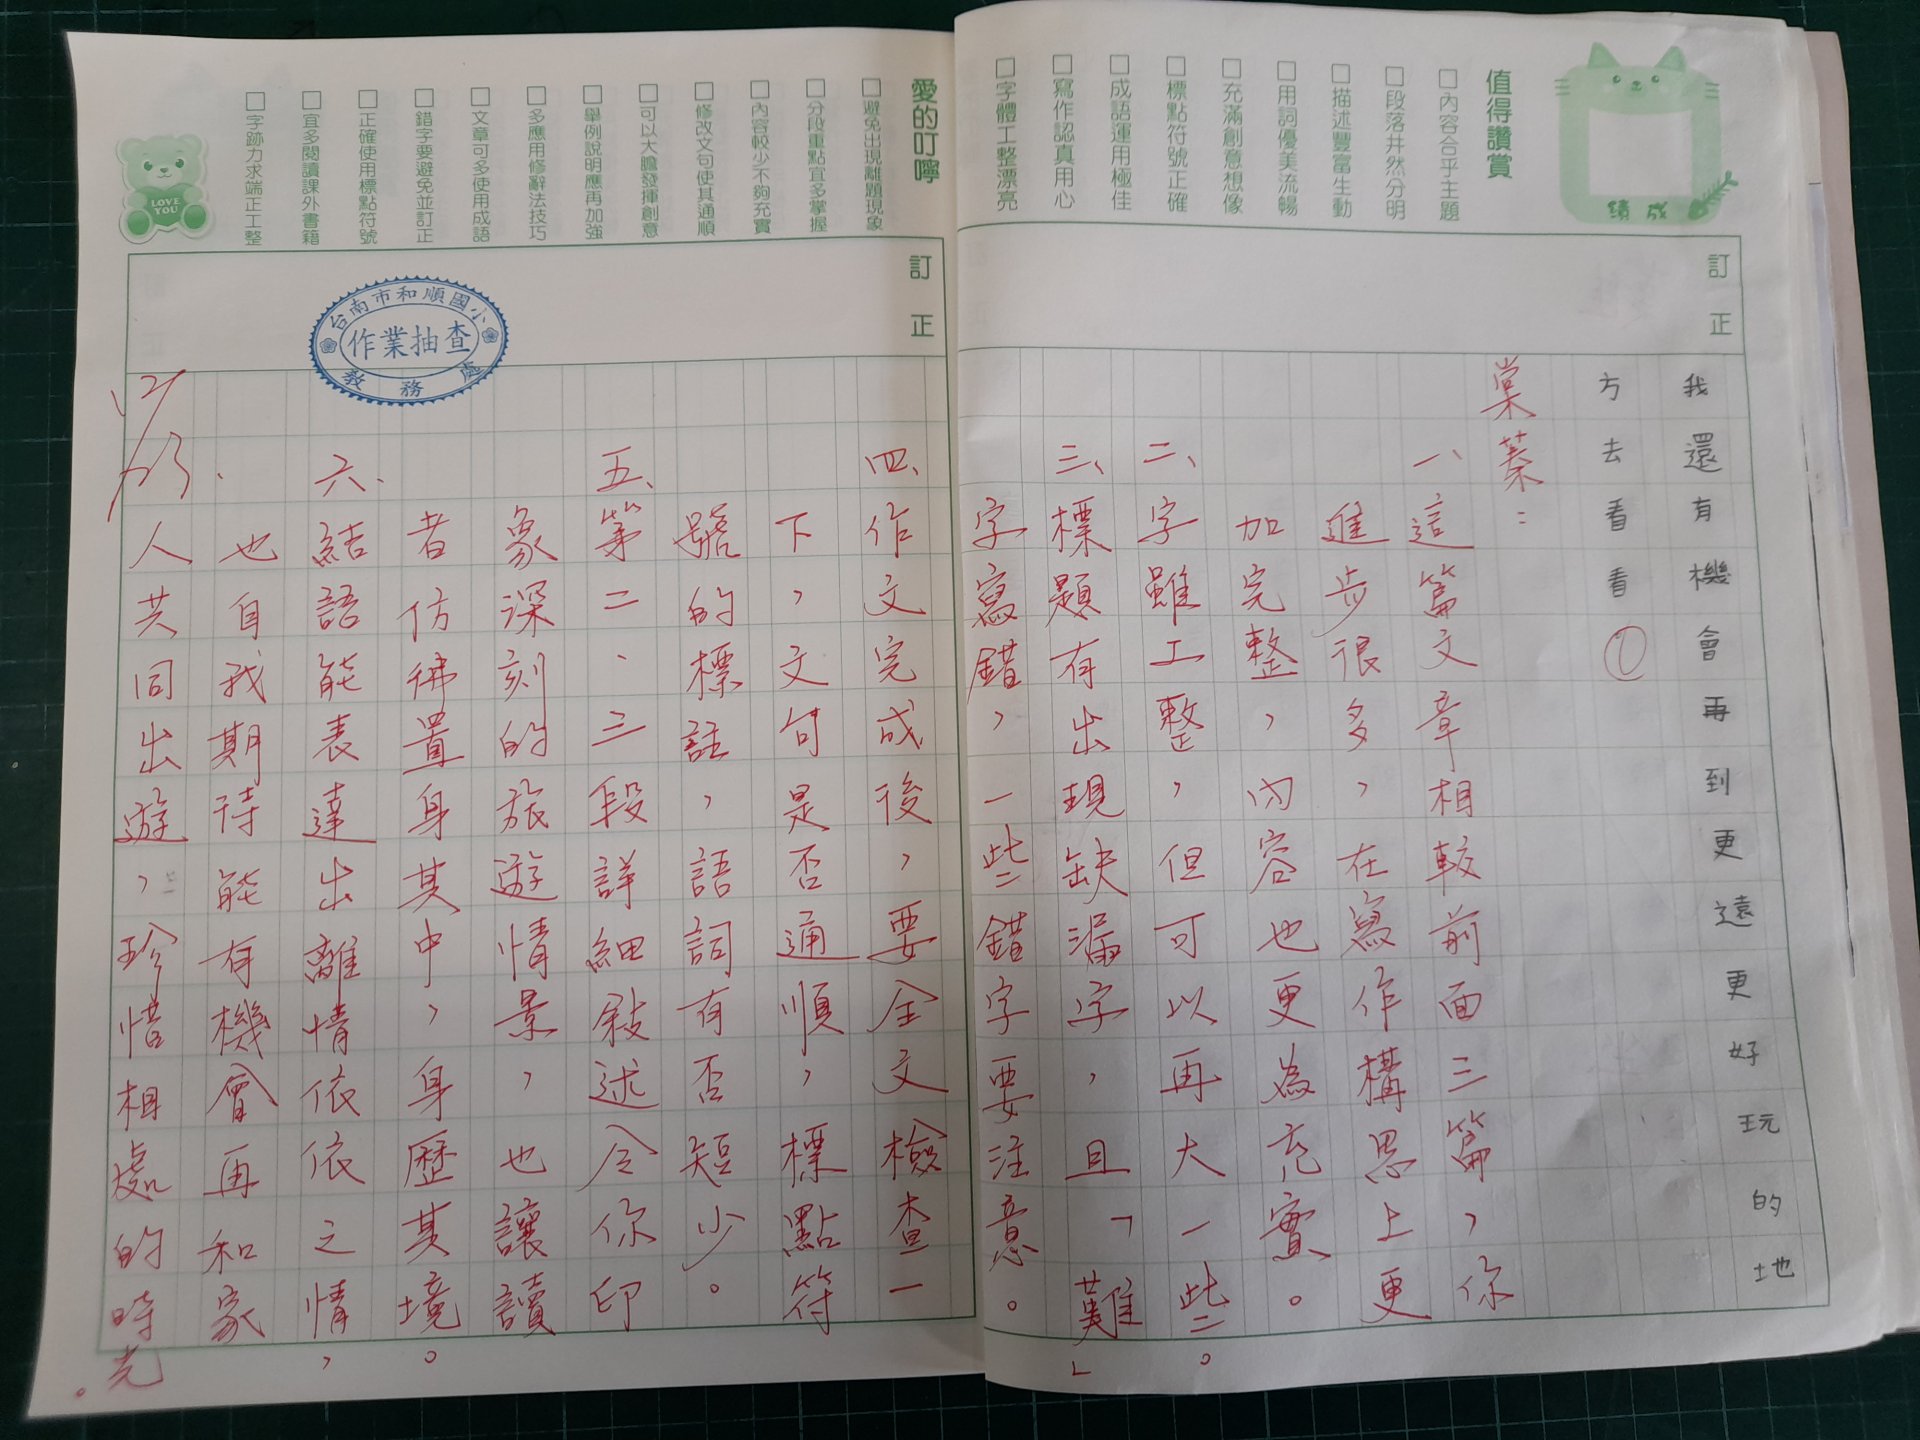 績成
值得讚賞
□內容合乎主題
□段落井然分明
□描述豐富生動
□用詞優美流暢
□充滿創意想像
□標點符號正確
□成語運用極佳
□寫作認真用心
□字體工整漂亮
訂正
我還有機會再到更遠更好玩的地
方去看看①
棠蓁：
一、這篇文章相較前面三篇，你
進步很多，在寫作構思上，更
加完整，內容也更為充實。
二、字雖工整，但可以再大一些。
三、標題有出現缺漏字，且「難」
字寫錯，一些錯字要注意。
愛的叮嚀
□避免出現離題現象
□分段重點宜多掌握
□內容較少不夠充實
□修改文句使其通順
□可以大膽發揮創意
□舉例說明應再加強
□多應用修辭法技巧
□文章可多使用成語
□錯字要避免並訂正
□正確使用標點符號
□宜多閱讀課外書籍
□字跡力求端正工整
LOVE
YOU
訂正
台南市和順國小
作業抽查
教務處
四、作文完成後，要全文檢查一
下，文句是否通順，標點符
號的標註，語詞有否短少。
五、第二、三段詳細敍述令你印
象深刻的旅遊情景，也讓讀
者仿彿置身其中，身歷其境。
六、結語能表達出離情依依之情，
也自我期待能有機會再和家
人共同出遊，珍惜相處的時光。